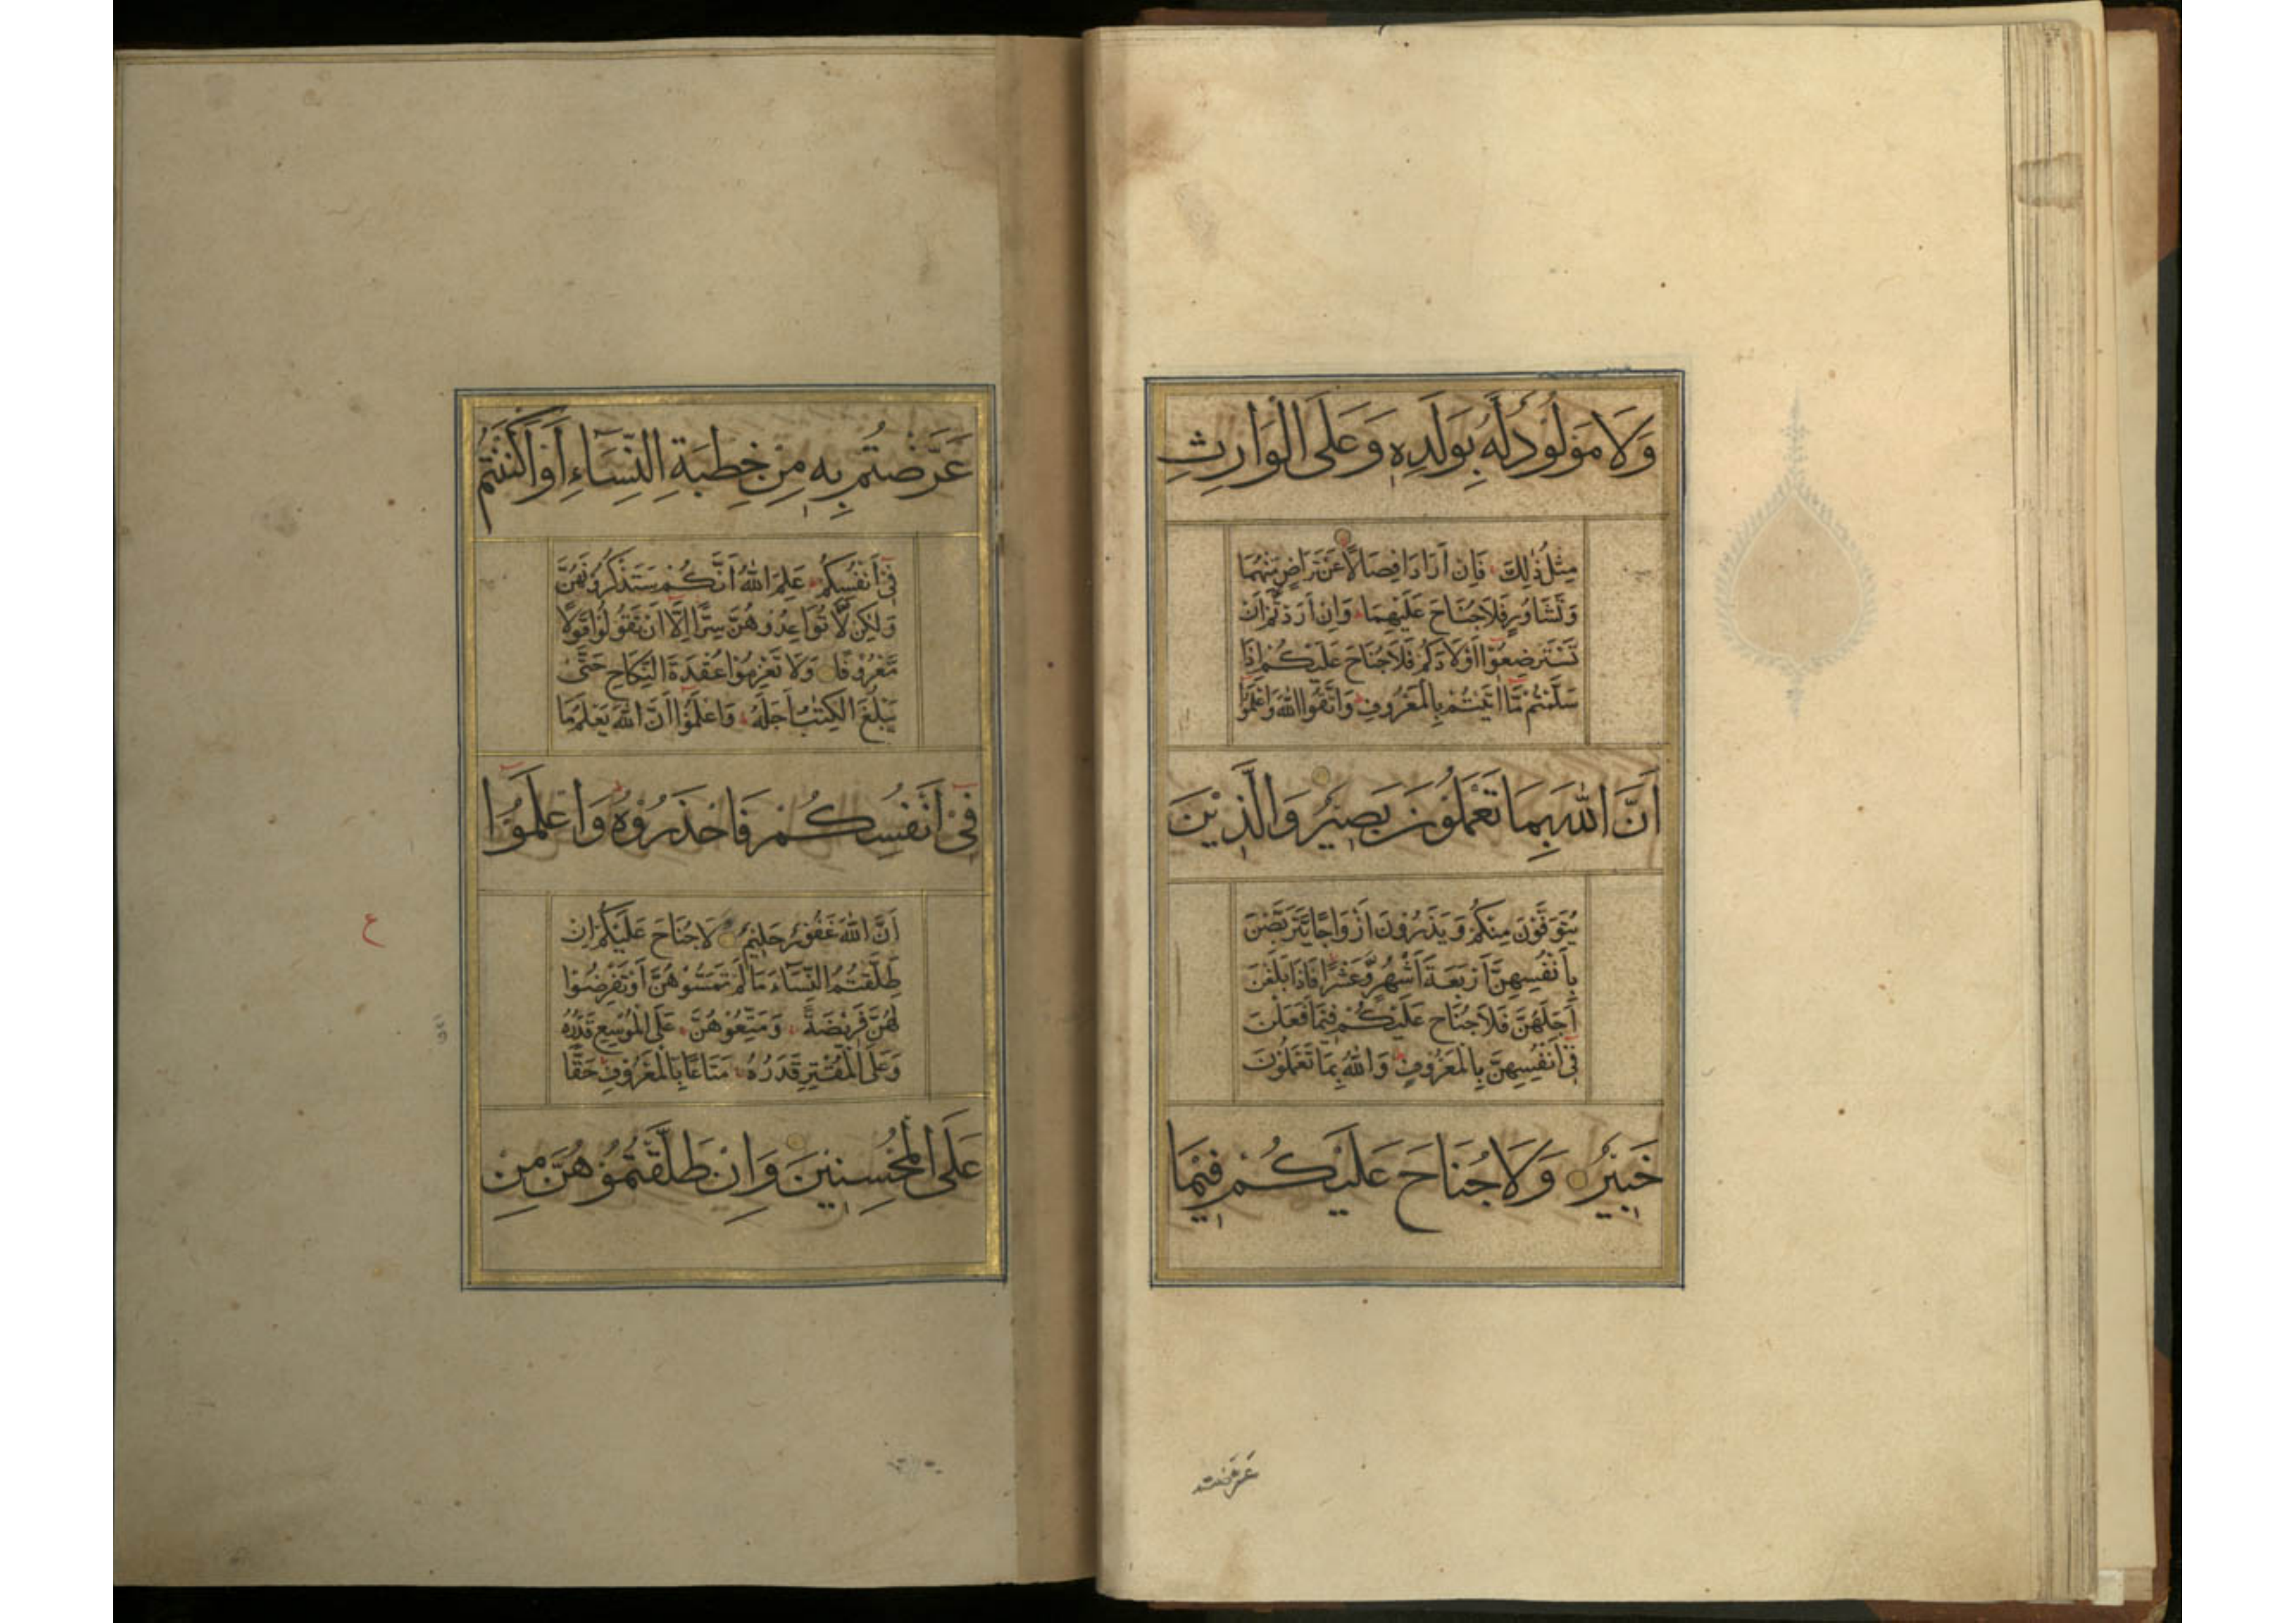 وَلَا مَوْلُودٌ لَّهُ بِوَلَدِهِ وَعَلَى الْوَارِثِ
مِثْلُ ذٰلِكَ فَاِنْ اَرَادَا فِصَالًا عَنْ تَرَاضٍ مِّنْهُمَا
وَتَشَاوُرٍ فَلَا جُنَاحَ عَلَيْهِمَا وَاِنْ اَرَدْتُّمْ اَنْ
تَسْتَرْضِعُوْٓا اَوْلَادَكُمْ فَلَا جُنَاحَ عَلَيْكُمْ اِذَا
سَلَّمْتُمْ مَّٓا اٰتَيْتُمْ بِالْمَعْرُوفِ وَاتَّقُوا اللّٰهَ وَاعْلَمُوْٓا
اَنَّ اللّٰهَ بِمَا تَعْمَلُوْنَ بَصِيْرٌ وَالَّذِيْنَ
يُتَوَفَّوْنَ مِنْكُمْ وَيَذَرُوْنَ اَزْوَاجًا يَّتَرَبَّصْنَ
بِاَنْفُسِهِنَّ اَرْبَعَةَ اَشْهُرٍ وَّعَشْرًا فَاِذَا بَلَغْنَ
اَجَلَهُنَّ فَلَا جُنَاحَ عَلَيْكُمْ فِيْمَا فَعَلْنَ
فِيْٓ اَنْفُسِهِنَّ بِالْمَعْرُوفِ وَاللّٰهُ بِمَا تَعْمَلُوْنَ
خَبِيْرٌ وَلَا جُنَاحَ عَلَيْكُمْ فِيْمَا
عَرَّضْتُمْ بِهِ مِنْ خِطْبَةِ النِّسَآءِ اَوْ اَكْنَنْتُمْ
فِيْٓ اَنْفُسِكُمْ عَلِمَ اللّٰهُ اَنَّكُمْ سَتَذْكُرُوْنَهُنَّ
وَلٰكِنْ لَّا تُوَاعِدُوْهُنَّ سِرًّا اِلَّٓا اَنْ تَقُوْلُوْا قَوْلًا
مَّعْرُوْفًا وَلَا تَعْزِمُوْا عُقْدَةَ النِّكَاحِ حَتّٰى
يَبْلُغَ الْكِتٰبُ اَجَلَهُ وَاعْلَمُوْٓا اَنَّ اللّٰهَ يَعْلَمُ مَا
فِيْٓ اَنْفُسِكُمْ فَاحْذَرُوْهُ وَاعْلَمُوْٓا
اَنَّ اللّٰهَ غَفُوْرٌ حَلِيْمٌ لَا جُنَاحَ عَلَيْكُمْ اِنْ
طَلَّقْتُمُ النِّسَآءَ مَا لَمْ تَمَسُّوْهُنَّ اَوْ تَفْرِضُوْا
لَهُنَّ فَرِيْضَةً وَمَتِّعُوْهُنَّ عَلَى الْمُوْسِعِ قَدَرُهُ
وَعَلَى الْمُقْتِرِ قَدَرُهُ مَتَاعًا بِالْمَعْرُوْفِ حَقًّا
عَلَى الْمُحْسِنِيْنَ وَاِنْ طَلَّقْتُمُوْهُنَّ مِنْ
ع